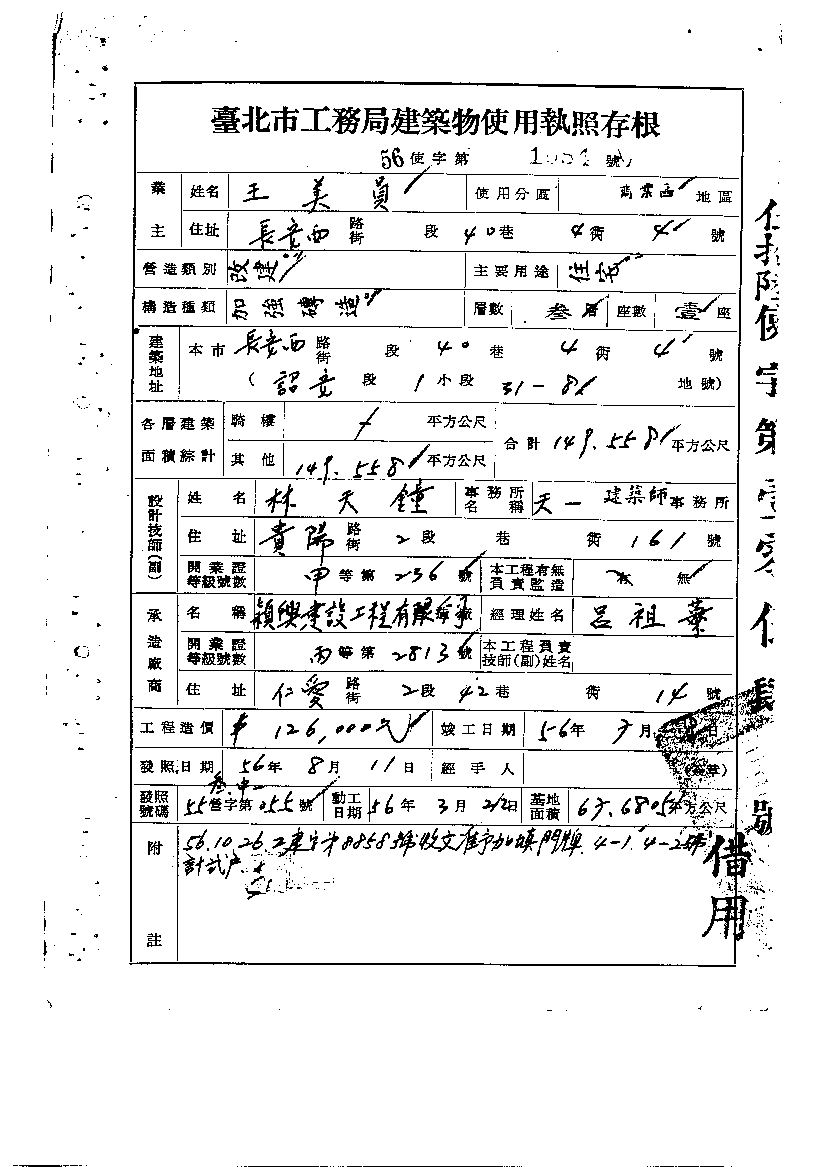 臺北市工務局建築物使用執照存根
56使字第 105 號
業主 姓名 王美員 使用分區 商業區 地區
住址 長安西 路街 段 40巷 4衖 4 號
營造類別 改建 主要用途 住宅
構造種類 加強磚造 層數 叁層 座數 壹座
建築地址 本市 長安西 路街 段 40巷 4衖 4 號
( 段 1小段 31-8 地號)
各層建築面積綜計 騎樓 平方公尺 合計 149.558 平方公尺
其他 149.558 平方公尺
設計技師(副) 姓名 林天鐘 事務所名稱 天一 建築師事務所
住址 貴陽 路街 2段 巷 衖 161號
開業證等級號數 甲等第236號 本工程有無負責監造 有 無
承造廠商 名稱 穎興建設工程有限 經理姓名 呂祖
開業證等級號數 丙等第2813號 本工程負責技師(副)姓名
住址 仁愛 路街 2段 42巷 衖 14號
工程造價 126,000元 竣工日期 56年 月 日
發照日期 56年8月11日 經手人
發照號碼 55營字第055號 動工日期 56年3月22日 基地面積 平方公尺
附註 56.10.26.工建字第8858號收文准予加填門牌 4-1 4-2號
計弍戶
借用